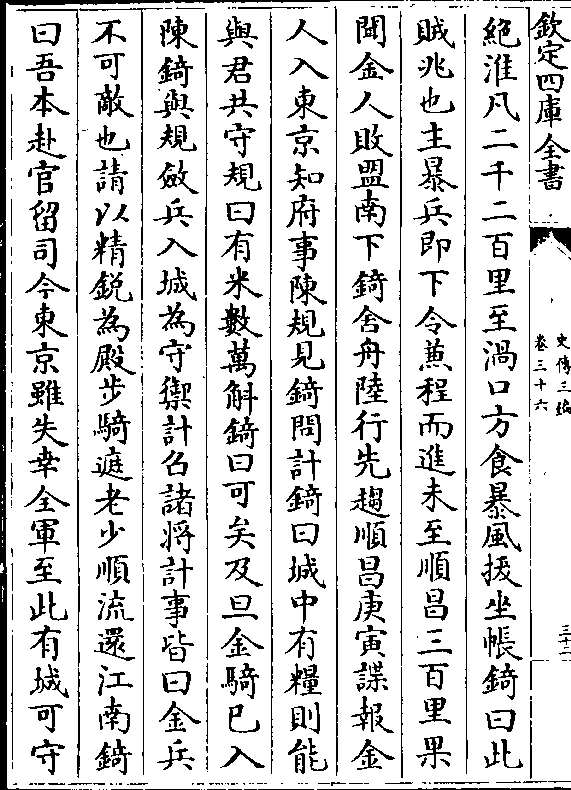 欽定四庫全書
史傳三編
卷三十六
三十二
絶淮凡二千二百里至渦口方食暴風拔坐帳錡曰此
賊兆也主暴兵即下令蒹程而進未至順昌三百里果
聞金人敗盟南下錡舍舟陸行先趨順昌庚寅諜報金
人入東京知府事陳規見錡問計錡曰城中有糧則能
與君共守規曰有米數萬斛錡曰可矣及旦金騎已入
陳錡與規斂兵入城為守禦計召諸將計事皆曰金兵
不可敵也請以精鋭為殿步騎遮老少順流還江南錡
曰吾本赴官留司今東京雖失幸全軍至此有城可守